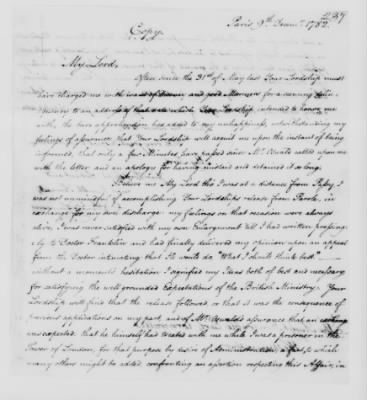 Paris 9th Decemr. 1782.
Copy.
My Lord,
Often since the 31st of May last Your Lordship must
have charged me with
to an address of that date which Your Lordship intended to honor me
with, the bare apprehension has added to my unhappiness, notwithstanding my
feelings of assurance that Your Lordship will acquit me upon the instant of being
informed, that only a few Minutes have passed since Mr. Oswald called upon me
with the letter and an apology for having mislaid and detained it so long.
Believe me My Lord tho I was at a distance from Passy, I
was not unmindful of accomplishing Your Lordships release from Parole, in
exchange for my own discharge my feelings on that occasion were always
alive, I was never satisfied with my own Enlargement 'till I had written pressing
ly to Doctor Franklin and had finally delivered my opinion upon an appeal
from the Doctor intimating that He would do "What I should think best"
without a moments hesitation I signified my Ideas both of best and necessary
for satisfying the well grounded Expectations of the British Ministry. Your
Lordship will find that the release followed, or that it was the consequence of
previous applications on my part, and of Mr. Oswald's assurance that an
was expected. that he himself had treated with me while I was a prisoner in the
Tower of London, for that purpose by desire of Administration, a fact, to which
many others might be added, confronting an assertion respecting this Affair, in